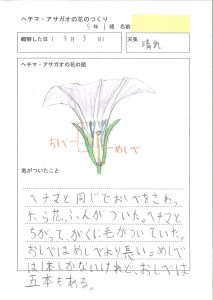 ヘチマ・アサガオの花のつくり
5年 1組 名前
観察した日( 9月 3日)
天気
晴れ
ヘチマ・アサガオの花の図
おしべ
めしべ
気がついたこと
ヘチマと同じでおしべをさわっ
たら花ふんがついた。ヘチマと
ちがって、がくに毛がついていた。
おしべはめしべより長い。めしべ
は1本しかないけれど、おしべは
五本もある。